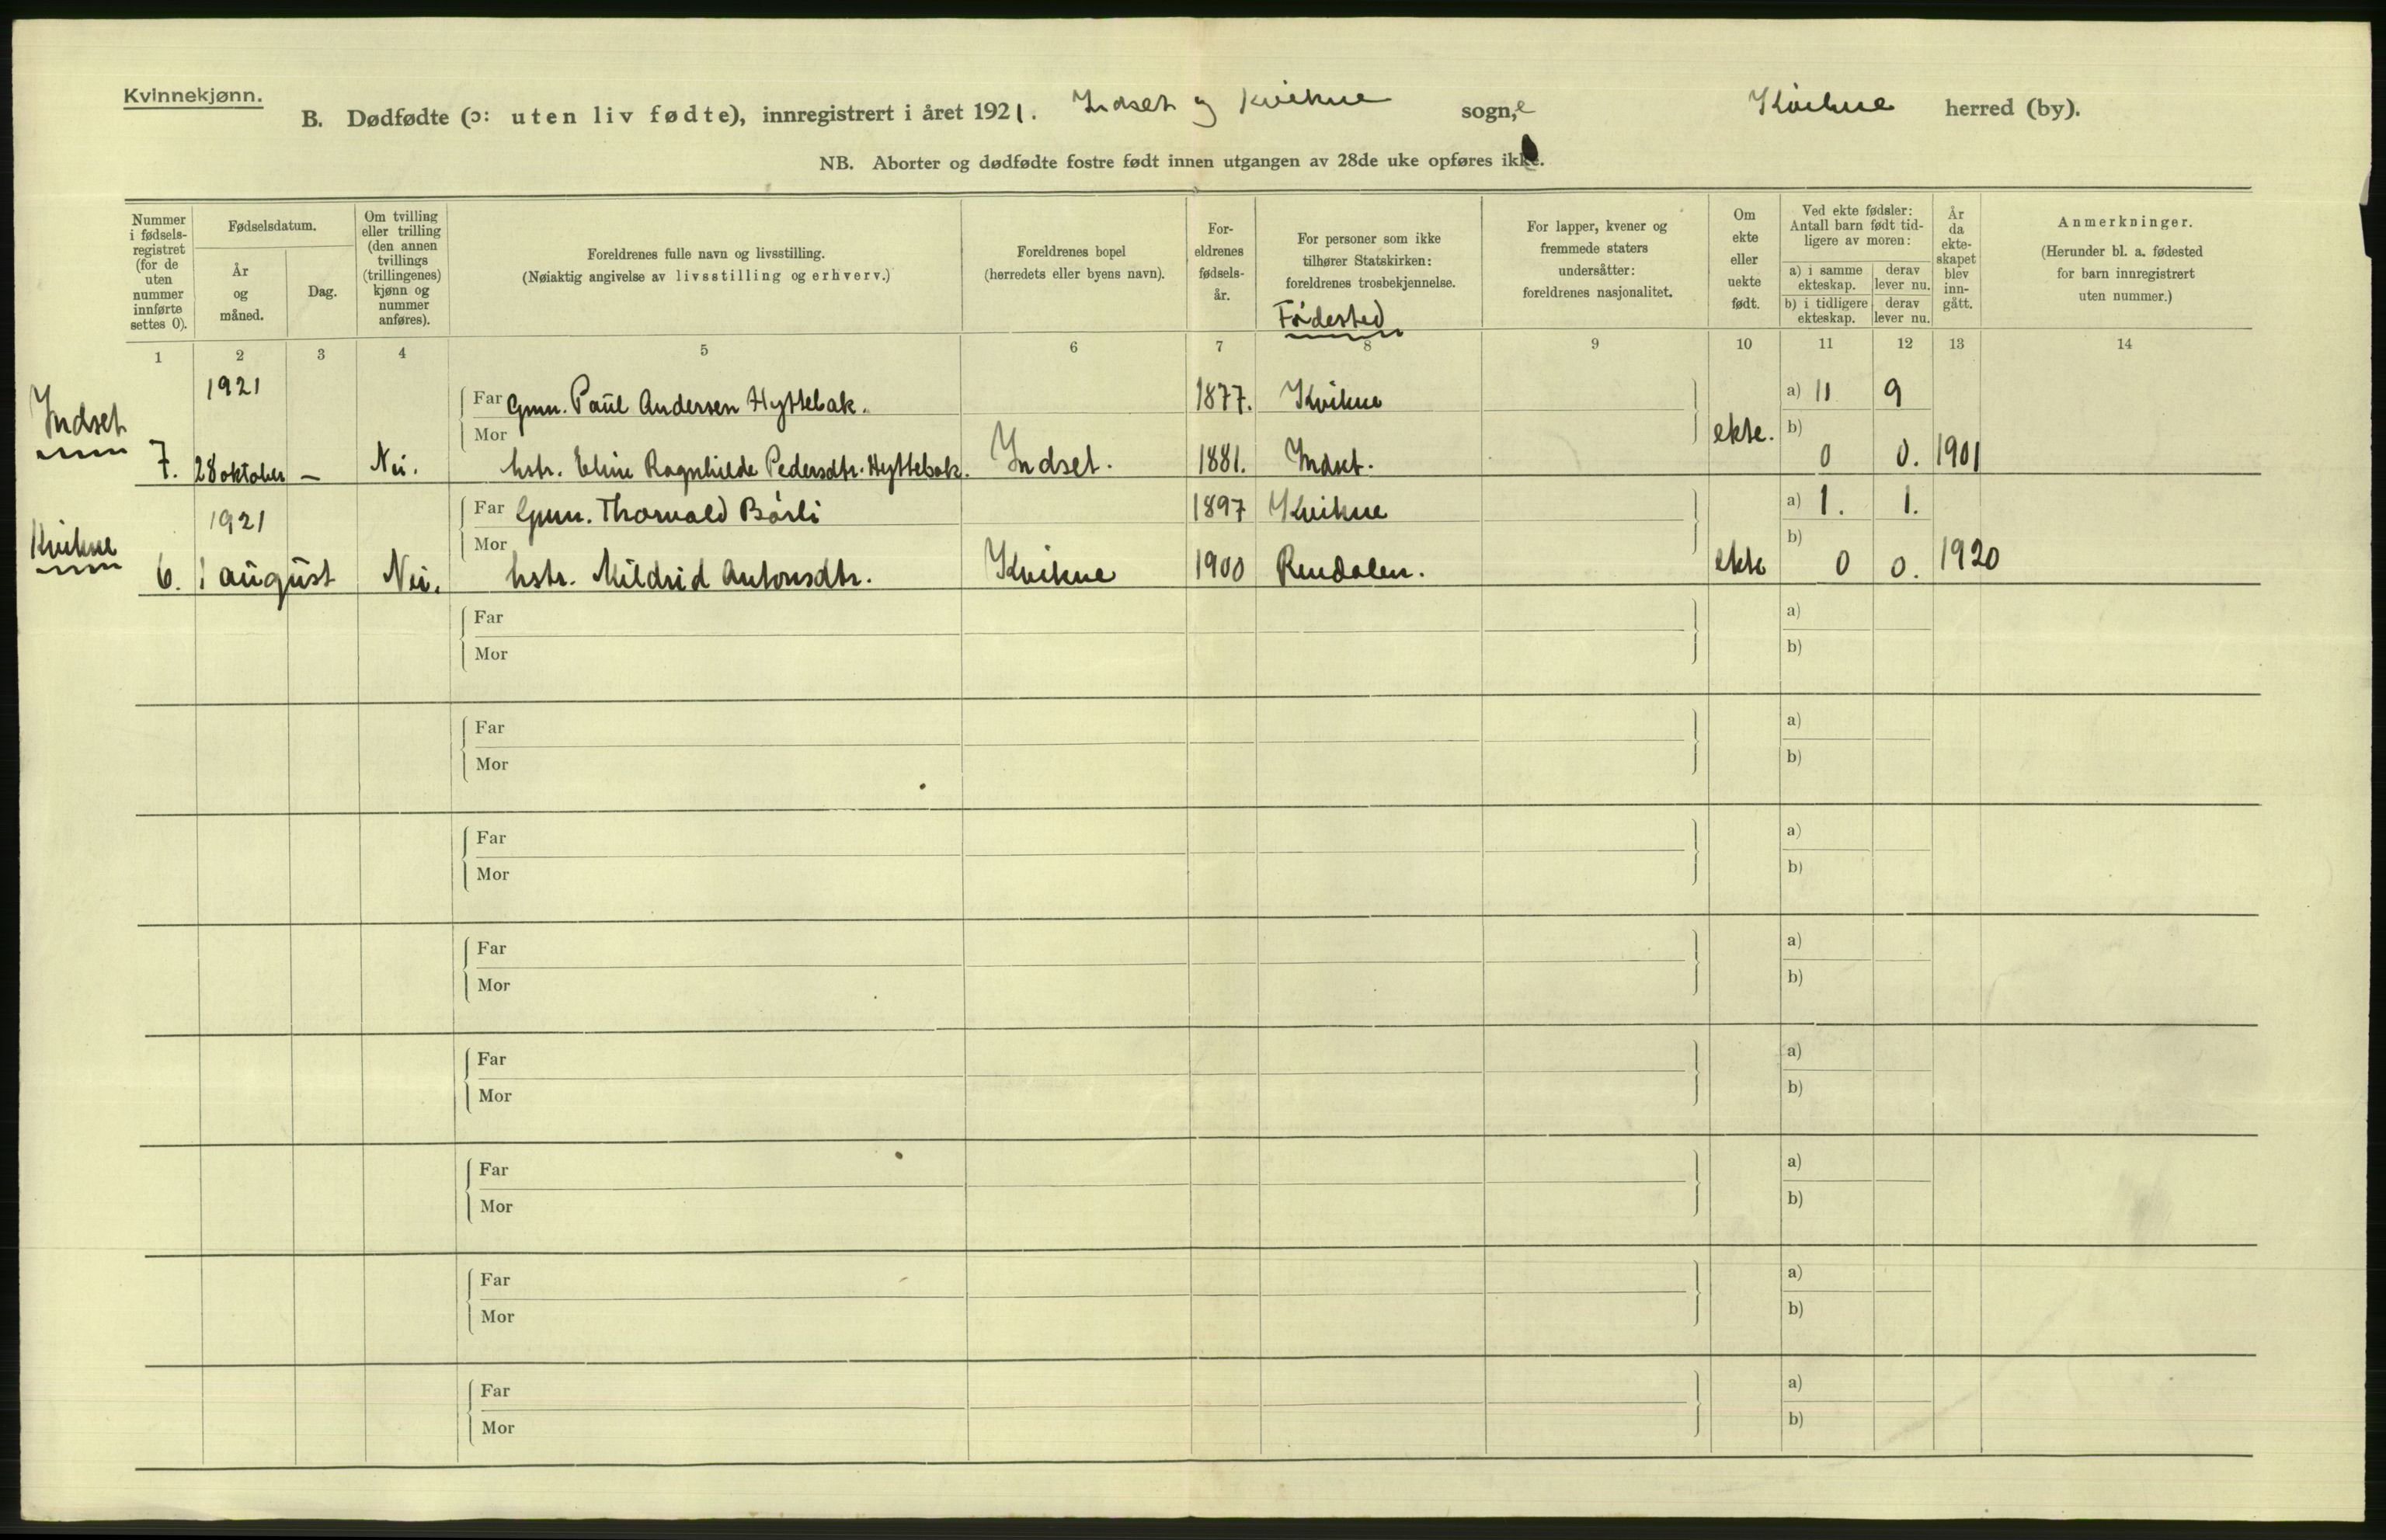 Kvinnekjønn.
B. Dødfødte (ɔ: uten liv fødte), innregistrert i året 1921. Indset og Kvikne sogn,e Kvikne herred (by).
NB. Aborter og dødfødte fostre født innen utgangen av 28de uke opføres ikke.
Nummer i fødsels-registret (for de uten nummer innførte settes 0).
Fødselsdatum.
År og måned.
Dag.
Om tvilling eller trilling (den annen tvillings (trillingenes) kjønn og nummer anføres).
Foreldrenes fulle navn og livsstilling.
(Nøiaktig angivelse av livsstilling og erhverv.)
Foreldrenes bopel
(herredets eller byens navn).
For-eldrenes fødsels-år.
For personer som ikke tilhører Statskirken: foreldrenes trosbekjennelse.
Fødested
For lapper, kvener og fremmede staters undersåtter: foreldrenes nasjonalitet.
Om ekte eller uekte født.
Ved ekte fødsler: Antall barn født tid-ligere av moren:
a) i samme ekteskap. derav lever nu.
b) i tidligere ekteskap. derav lever nu.
År da ekte-skapet blev inn-gått.
Anmerkninger.
(Herunder bl. a. fødested for barn innregistrert uten nummer.)
1 2 3 4 5 6 7 8 9 10 11 12 13 14
Indset
1921
Far Gmn. Paul Andersen Hyttebak. 1877. Kvikne a) 11 9
7. 28 oktober – Nei. Mor hstr. Eline Ragnhilde Pedersdtr. Hyttebak. Indset. 1881. Indset. ekte. b) 0 0. 1901
Kvikne
1921
Far Gmn. Thorvald Børli 1897 Kvikne a) 1. 1.
6. 1 august Nei. Mor hstr. Mildrid Antonsdtr. Kvikne 1900 Rendalen. ekte b) 0 0. 1920
Far a)
Mor b)
Far a)
Mor b)
Far a)
Mor b)
Far a)
Mor b)
Far a)
Mor b)
Far a)
Mor b)
Far a)
Mor b)
Far a)
Mor b)